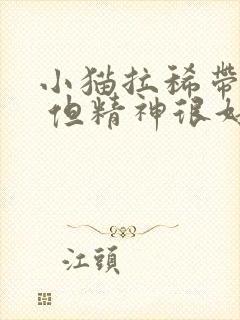 小猫拉稀带
但精神很好
江頭